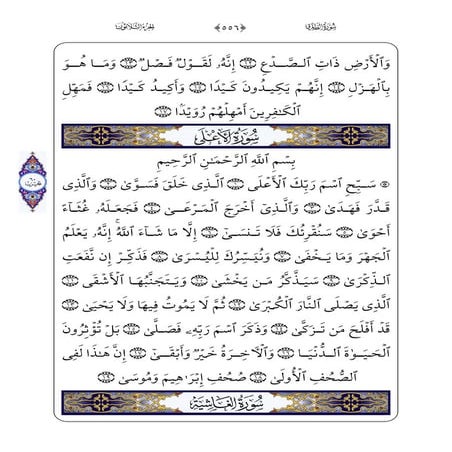 سُورَةُ الطَّارِقِ ﴿٥٥٦﴾ الجُزْءُ الثَّلَاثُونَ
وَٱلْأَرْضِ ذَاتِ ٱلصَّدْعِ إِنَّهُۥ لَقَوْلٌ فَصْلٌ وَمَا هُوَ
بِٱلْهَزْلِ إِنَّهُمْ يَكِيدُونَ كَيْدًا وَأَكِيدُ كَيْدًا فَمَهِّلِ
ٱلْكَٰفِرِينَ أَمْهِلْهُمْ رُوَيْدًۢا
سُورَةُ الأَعْلَىٰ
بِسْمِ ٱللَّهِ ٱلرَّحْمَٰنِ ٱلرَّحِيمِ
سَبِّحِ ٱسْمَ رَبِّكَ ٱلْأَعْلَى ٱلَّذِى خَلَقَ فَسَوَّىٰ وَٱلَّذِى
قَدَّرَ فَهَدَىٰ وَٱلَّذِىٓ أَخْرَجَ ٱلْمَرْعَىٰ فَجَعَلَهُۥ غُثَآءً
أَحْوَىٰ سَنُقْرِئُكَ فَلَا تَنسَىٰٓ إِلَّا مَا شَآءَ ٱللَّهُ ۚ إِنَّهُۥ يَعْلَمُ
ٱلْجَهْرَ وَمَا يَخْفَىٰ وَنُيَسِّرُكَ لِلْيُسْرَىٰ فَذَكِّرْ إِن نَّفَعَتِ
ٱلذِّكْرَىٰ سَيَذَّكَّرُ مَن يَخْشَىٰ وَيَتَجَنَّبُهَا ٱلْأَشْقَى
ٱلَّذِى يَصْلَى ٱلنَّارَ ٱلْكُبْرَىٰ ثُمَّ لَا يَمُوتُ فِيهَا وَلَا يَحْيَىٰ
قَدْ أَفْلَحَ مَن تَزَكَّىٰ وَذَكَرَ ٱسْمَ رَبِّهِۦ فَصَلَّىٰ بَلْ تُؤْثِرُونَ
ٱلْحَيَوٰةَ ٱلدُّنْيَا وَٱلْءَاخِرَةُ خَيْرٌ وَأَبْقَىٰٓ إِنَّ هَٰذَا لَفِى
ٱلصُّحُفِ ٱلْأُولَىٰ صُحُفِ إِبْرَٰهِيمَ وَمُوسَىٰ
سُورَةُ الغَاشِيَةِ